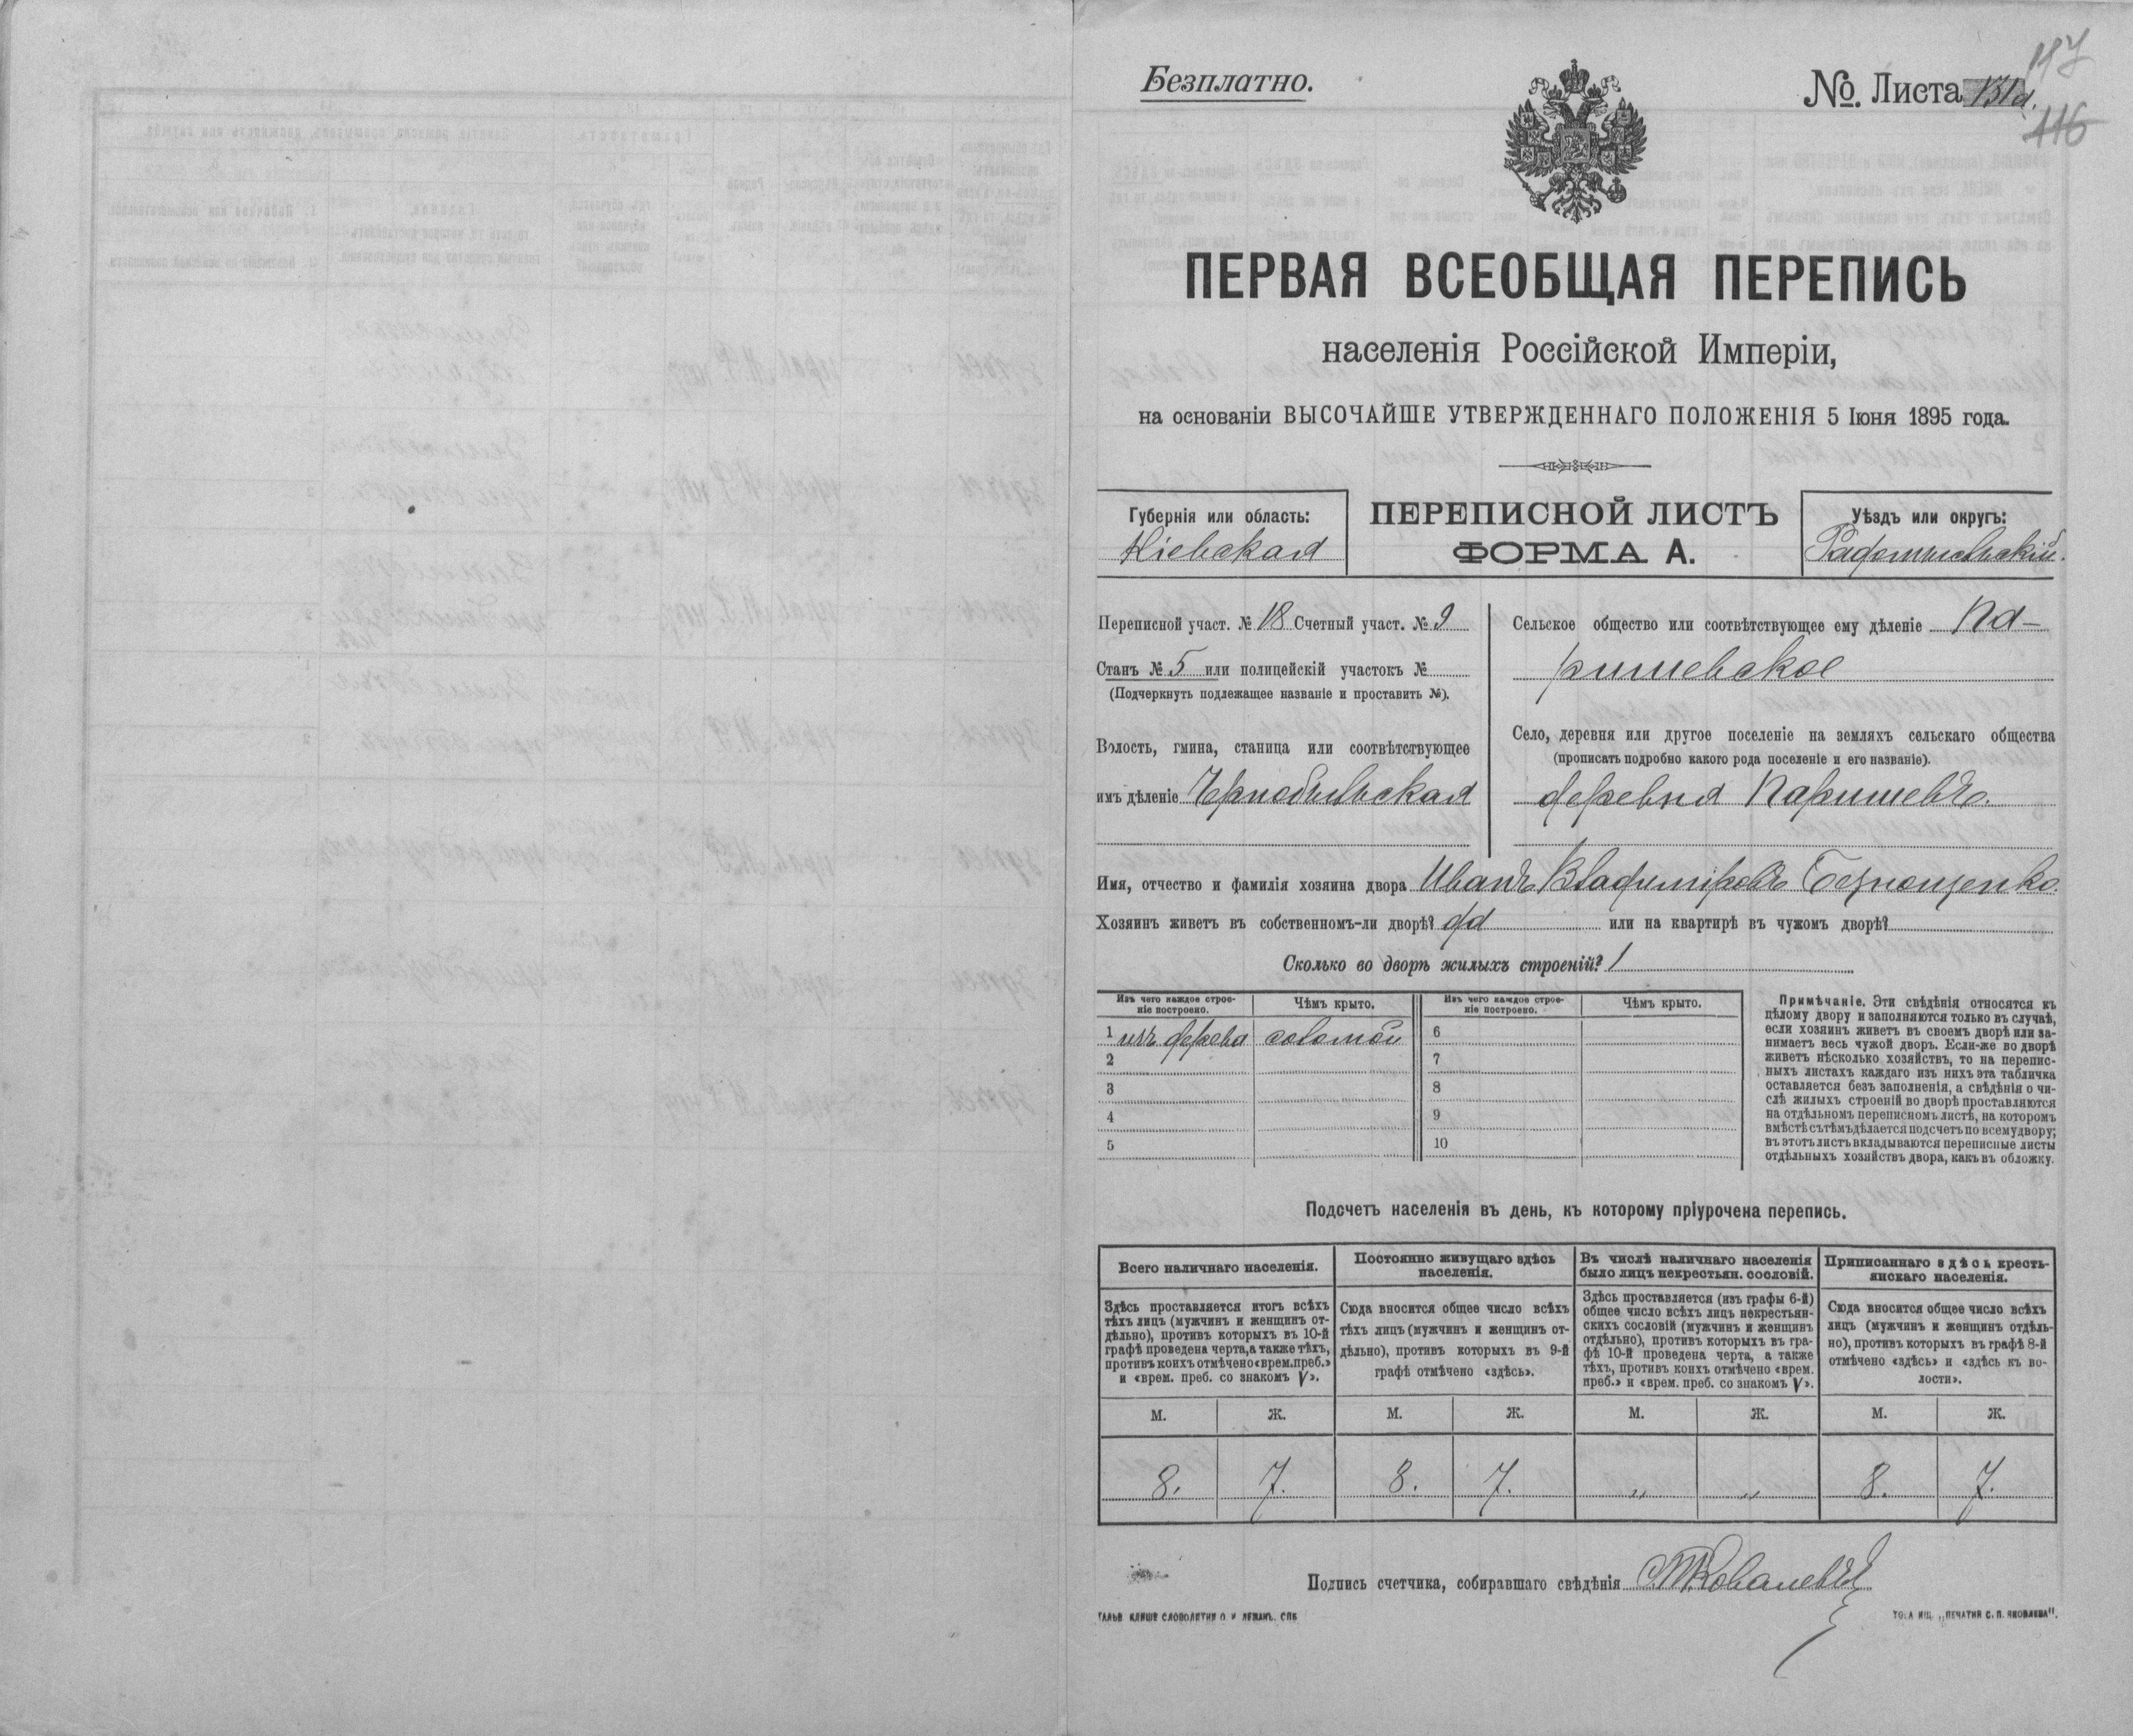 Безплатно.
№ Листа 131а.
117
116
ПЕРВАЯ ВСЕОБЩАЯ ПЕРЕПИСЬ
населенія Россійской Имперіи,
на основаніи ВЫСОЧАЙШЕ УТВЕРЖДЕННАГО ПОЛОЖЕНІЯ 5 Іюня 1895 года.
Губернія или область:
Кіевская
ПЕРЕПИСНОЙ ЛИСТЪ
ФОРМА А.
Уѣздъ или округъ:
Радомысльскій.
Переписной участ. № 18 Счетный участ. № 9
Станъ № 5 или полицейскій участокъ №
(Подчеркнуть подлежащее названіе и проставить №).
Волость, гмина, станица или соотвѣтствующее
имъ дѣленіе Чернобыльская
Сельское общество или соотвѣтствующее ему дѣленіе Па-
ришевское
Село, деревня или другое поселеніе на земляхъ сельскаго общества
(прописать подробно какого рода поселеніе и его названіе).
деревня Паришевъ.
Имя, отчество и фамилія хозяина двора Иванъ Владиміровъ Безнощенко
Хозяинъ живетъ въ собственномъ-ли дворѣ? да или на квартирѣ въ чужомъ дворѣ?
Сколько во дворѣ жилыхъ строеній? 1
Изъ чего каждое строе-
ніе построено.
Чѣмъ крыто.
Изъ чего каждое строе-
ніе построено.
Чѣмъ крыто.
1 изъ дерева соломой 6
2 7
3 8
4 9
5 10
Примѣчаніе. Эти свѣдѣнія относятся къ
цѣлому двору и заполняются только въ случаѣ,
если хозяинъ живетъ въ своемъ дворѣ или за-
нимаетъ весь чужой дворъ. Если-же во дворѣ
живетъ нѣсколько хозяйствъ, то на перепис-
ныхъ листахъ каждаго изъ нихъ эта табличка
оставляется безъ заполненія, а свѣдѣнія о чи-
слѣ жилыхъ строеній во дворѣ проставляются
на отдѣльномъ переписномъ листѣ, на которомъ
вмѣстѣ съ тѣмъ дѣлается подсчетъ по всему двору;
въ этотъ листъ вкладываются переписные листы
отдѣльныхъ хозяйствъ двора, какъ въ обложку.
Подсчетъ населенія въ день, къ которому пріурочена перепись.
Всего наличнаго населенія.
Здѣсь проставляется итогъ всѣхъ
тѣхъ лицъ (мужчинъ и женщинъ от-
дѣльно), противъ которыхъ въ 10-й
графѣ проведена черта, а также тѣхъ,
противъ коихъ отмѣчено «врем. преб.»
и «врем. преб. со знакомъ V».
Постоянно живущаго здѣсь
населенія.
Сюда вносится общее число всѣхъ
тѣхъ лицъ (мужчинъ и женщинъ от-
дѣльно), противъ которыхъ въ 9-й
графѣ отмѣчено «здѣсь».
Въ числѣ наличнаго населенія
было лицъ некрестьян. сословій.
Здѣсь проставляется (изъ графы 6-й)
общее число всѣхъ лицъ некрестьян-
скихъ сословій (мужчинъ и женщинъ
отдѣльно), противъ которыхъ въ гра-
фѣ 10-й проведена черта, а также
тѣхъ, противъ коихъ отмѣчено «врем.
преб.» и «врем. преб. со знакомъ V».
Приписаннаго здѣсь кресть-
янскаго населенія.
Сюда вносится общее число всѣхъ
лицъ (мужчинъ и женщинъ отдѣль-
но), противъ которыхъ въ графѣ 8-й
отмѣчено «здѣсь» и «здѣсь къ во-
лости».
М. Ж. М. Ж. М. Ж. М. Ж.
8. 7. 8. 7. „ „ 8. 7.
Подпись счетчика, собиравшаго свѣдѣнія